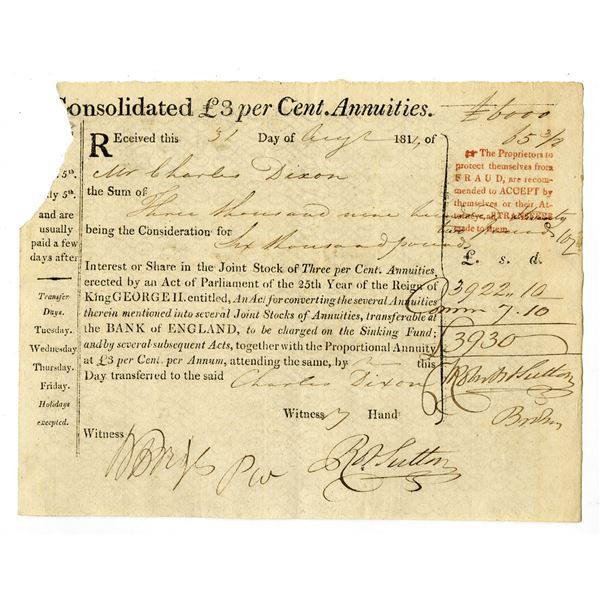 Consolidated £3 per Cent. Annuities.
£6000
65 3/8
REceived this 31 Day of Augt 1814, of
Mr Charles Dixon
the Sum of
Three thousand nine hundred & twenty
two pounds 10/
being the Consideration for
Six thousand pounds
Interest or Share in the Joint Stock of Three per Cent. Annuities,
erected by an Act of Parliament of the 25th Year of the Reign of
King GEORGE II. entitled, An Act for converting the several Annuities
therein mentioned into several Joint Stocks of Annuities, transferable at
the BANK of ENGLAND, to be charged on the Sinking Fund;
and by several subsequent Acts, together with the Proportional Annuity
at £3 per Cent. per Annum, attending the same, by this
Day transferred to the said Charles Dixon
Witness my Hand
Witness
Rt Sutton
5th.
ly 5th.
and are
usually
paid a few
days after
Transfer
Days.
Tuesday.
Wednesday
Thursday.
Friday.
Holidays
excepted.
☞ The Proprietors to
protect themselves from
FRAUD, are recom-
mended to ACCEPT by
themselves or their At-
tornies, all TRANSFERS
made to them.
£. s. d.
3922 " 10
Comm 7 . 10
3930
Sutton
Brokr